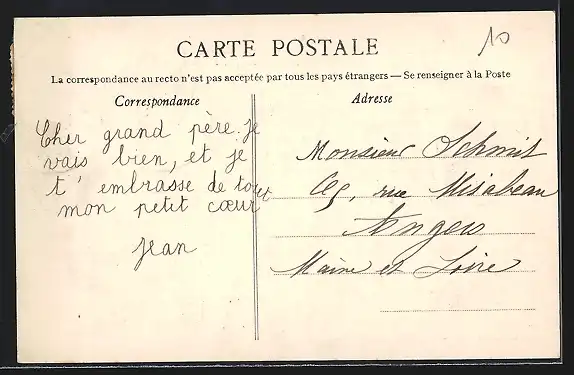 10
CARTE POSTALE
La correspondance au recto n'est pas acceptée par tous les pays étrangers — Se renseigner à la Poste
Correspondance
Cher grand père. Je
vais bien, et je
t'embrasse de tout
mon petit cœur
Jean
Adresse
Monsieur Schmit
rue Mirabeau
Angers
Maine et Loire